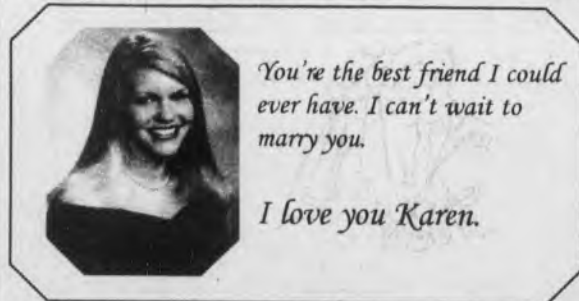 You're the best friend I could
ever have. I can't wait to
marry you.
I love you Karen.